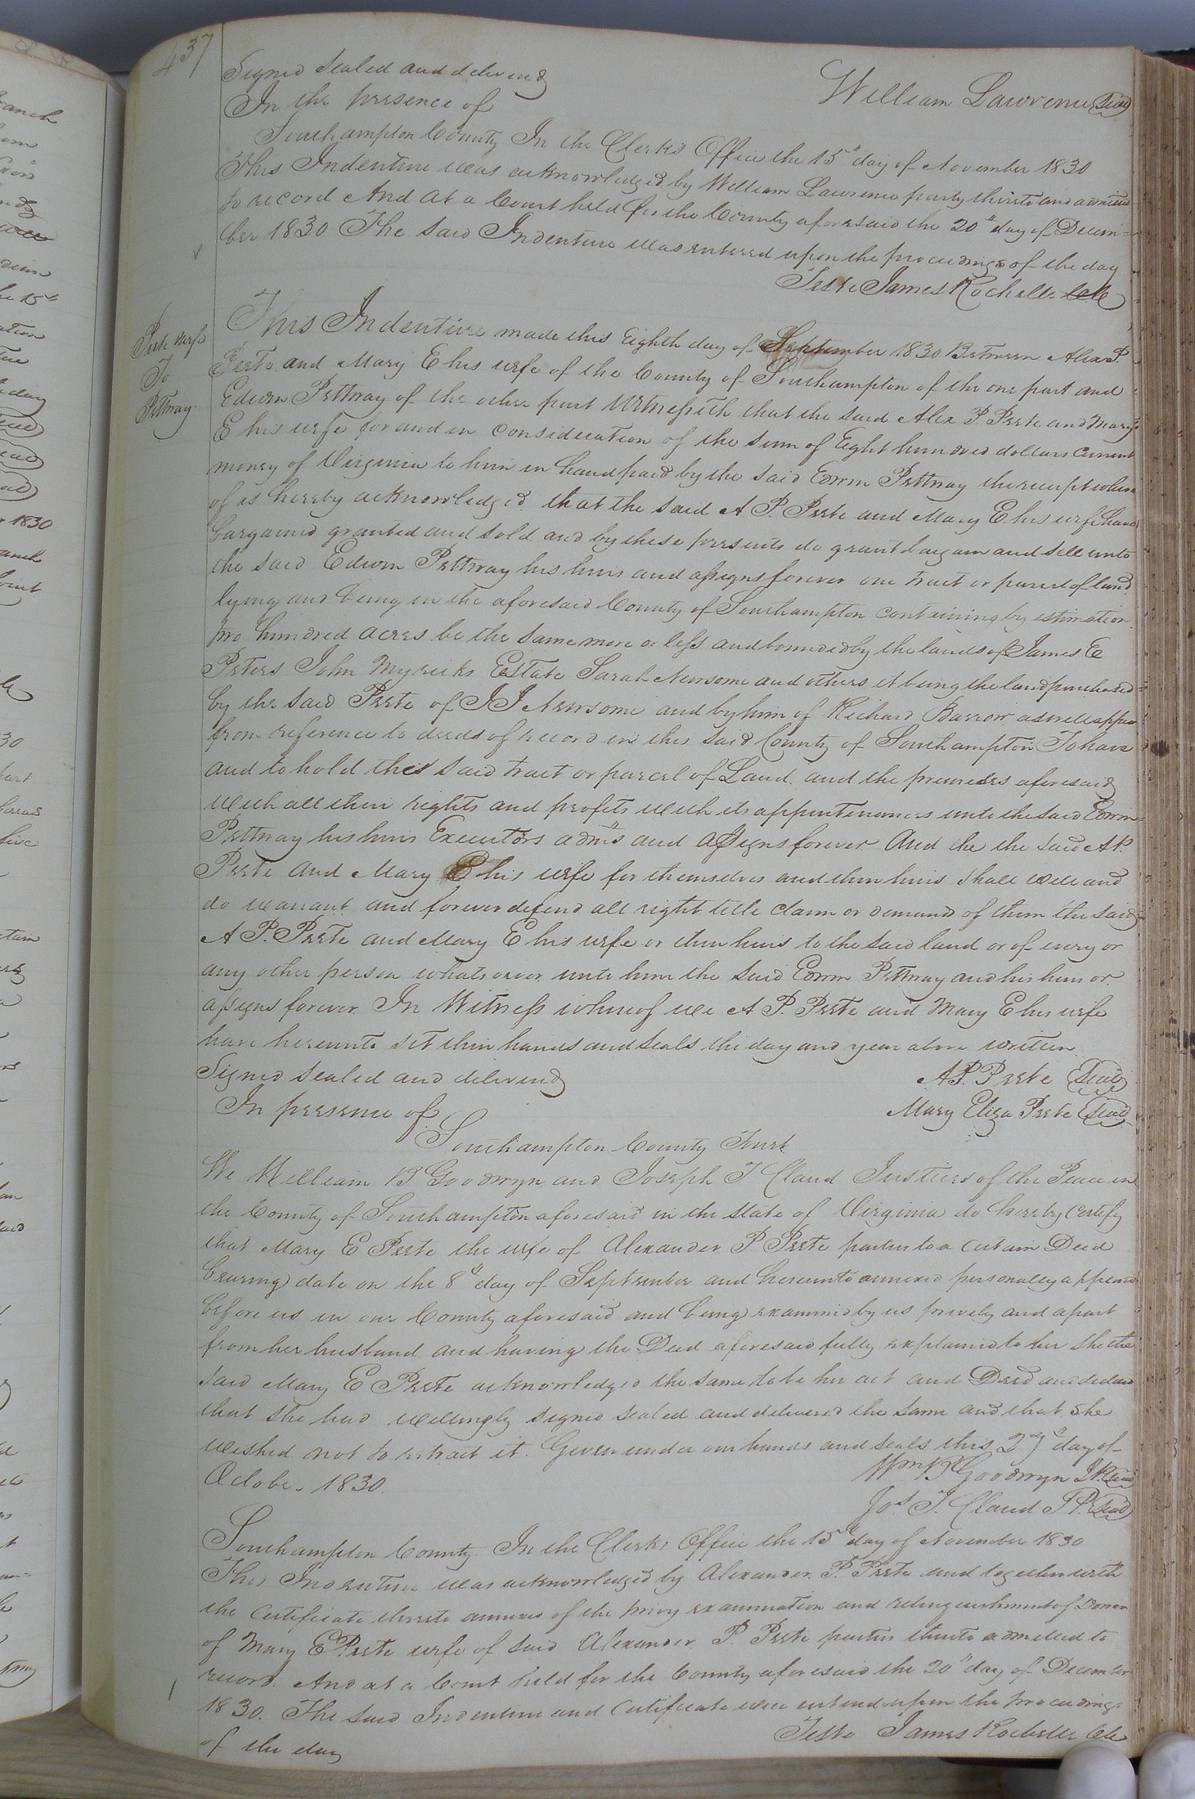 437
Signed Sealed and delivered
William Lawrence Seal
In the presence of
Southampton County In the Clerks Office the 15th day of November 1830
This Indenture was acknowledged by William Lawrence party thereto and admitted
to record And at a Court held for the County aforesaid the 20th day of Decem=
ber 1830 The Said Indenture was entered upon the proceedings of the day
Teste James Rochelle Clk
Peete & wife
To
Pettway
This Indenture made this Eighth day of September 1830 Between Alex P.
Peete and Mary E his wife of the County of Southampton of the one part and
Edwin Pettway of the other part Witnesseth that the said Alex P. Peete and Mary
E his wife for and in consideration of the sum of Eight hundred dollars current
money of Virginia to him in hand paid by the said Edwin Pettway the receipt where
of is hereby acknowledged, that the said A P. Peete and Mary E. his wife have
bargained granted and sold and by these presents do grant bargain and sell unto
the said Edwin Pettway his heirs and assigns forever one tract or parcel of land
lying and being in the aforesaid County of Southampton containing by estimation
two hundred acres be the same more or less and bounded by the lands of James E
Peters John Myricks Estate Sarah Newsome and others it being the land purchased
by the said Peete of J J Newsome and by him of Richard Barrow as will appear
from reference to deeds of record in the said County of Southampton To have
and to hold the said tract or parcel of Land and the premises aforesaid
with all their rights and profits with its appurtenances unto the said Edwin
Pettway his heirs Executors admrs and assigns forever And he the said A P.
Peete and Mary E his wife for themselves and their heirs shall will and
do warrant and forever defend all right title claim or demand of them the said
A P. Peete and Mary E his wife or their heirs to the said land or of every or
any other person whatsoever unto him the said Edwin Pettway and his heirs or
assigns forever. In Witness whereof we A P. Peete and Mary E his wife
have hereunto set their hands and seals the day and year above written
Signed Sealed and delivered
A.P. Peete Seal
In presence of
Mary Eliza Peete Seal
Southampton County Towit
We William B Goodwyn and Joseph T Claud Justices of the Peace in
the County of Southampton aforesaid in the State of Virginia do hereby certify
that Mary E Peete the wife of Alexander P. Peete parties to a certain Deed
bearing date on the 8th day of September and hereunto annexed personally appeared
before us in our County aforesaid and being examined by us privily and apart
from her husband and having the Deed aforesaid fully explained to her She the
said Mary E Peete acknowledged the same to be her act and Deed and declared
that she had willingly signed sealed and delivered the same and that she
wished not to retract it. Given under our hands and seals this 27th day of
October 1830.
Wm B Goodwyn J.P. Seal
Jos. T. Claud J.P. Seal
Southampton County In the Clerks Office the 15th day of November 1830
This Indenture was acknowledged by Alexander P. Peete and together with
the Certificate thereto annexed of the privy examination and relinquishment of Dower
of Mary E Peete wife of said Alexander P. Peete parties thereto admitted to
record. And at a Court held for the County aforesaid the 20th day of December
1830. The said Indenture and certificate were entered upon the proceedings
of the day
Teste James Rochelle Clk